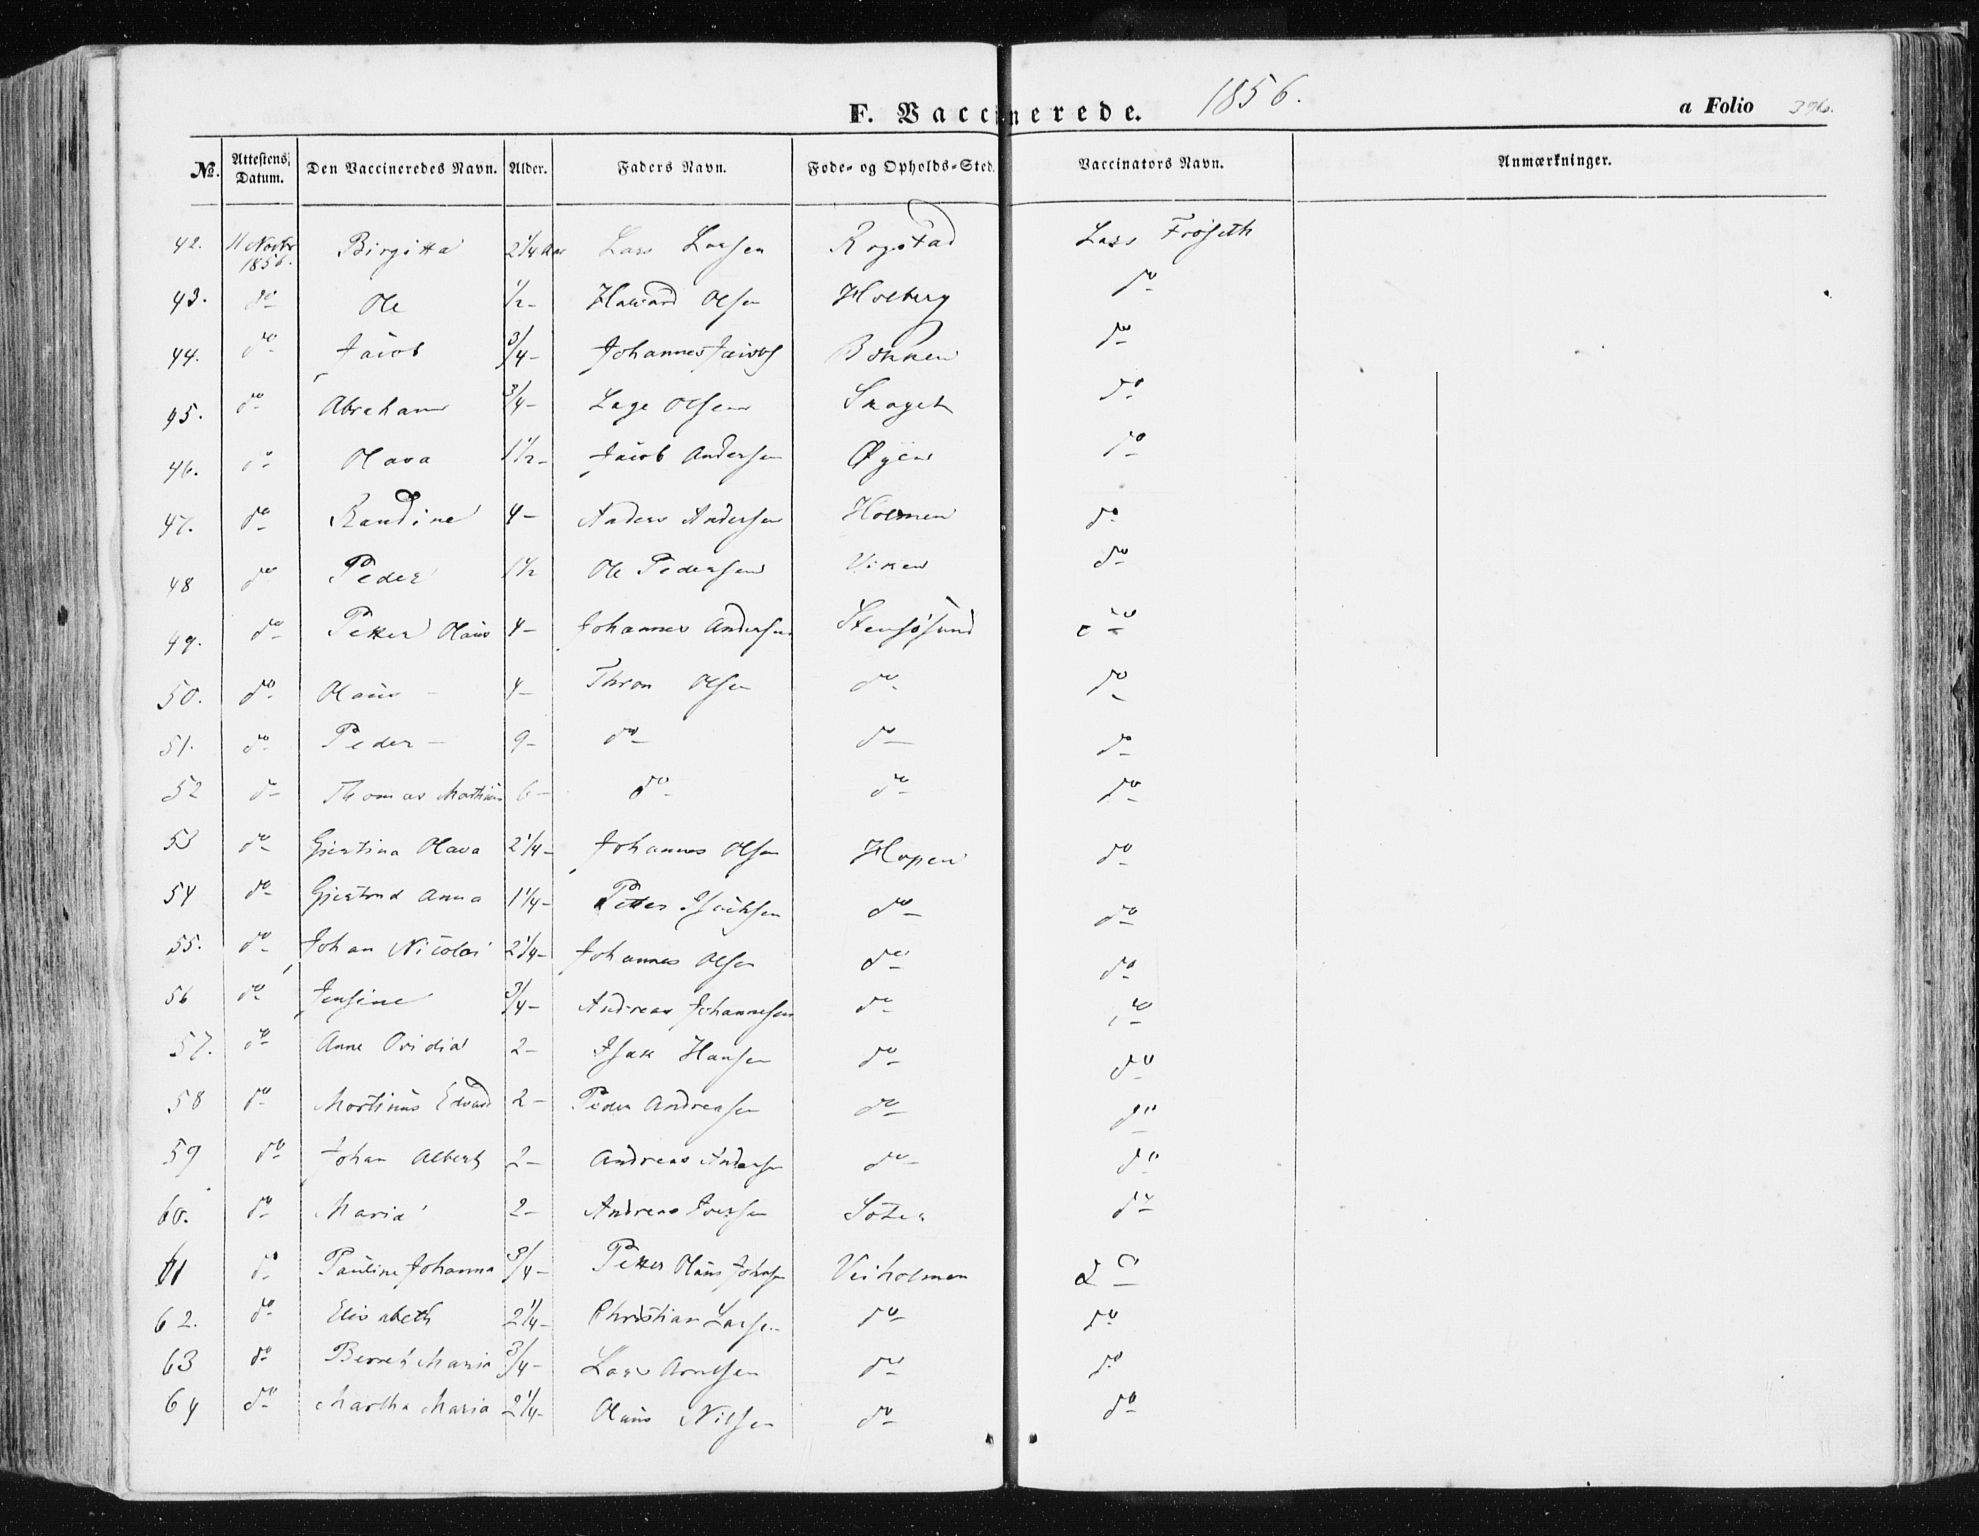 F. Vaccinerede. 1856. a Folio
No. Attestens Datum. Den Vaccineredes Navn. Alder. Faders Navn. Føde- og Opholds-Sted. Vaccinators Navn. Anmærkninger.
42. 11 Novbr 1856. Birgitta 2 1/4 Aar Lars Larsen Rogstad Lars Frøseth
43. do Ole 1/2 - Haward Olsen Holberg do
44. do Jacob 3/4 - Johannes Jacobs do
45. do Abraham 3/4 - Lage Olsen Skaget do
46. do Olava 1 1/2 - Jacob Andersen Øyen do
47. do Randine 4 - Anders Andersen Holmen do
48 do Peder 1 1/2 Ole Pedersen Viken do
49. do Petter Olaus 4 - Johannes Andersen Stensøsund do
50. do Olaus - 4 - Thron Olsen do do
51. do Peder - 9 - do do do
52 do Thomas Mathias 6 - do do do
53 do Gjertina Olava 2 1/4 - Johannes Olsen Hopen do
54 do Gjertrud Anna 1 1/4 - Petter Isachsen do do
55. do Johan Nicolai 2 1/4 - Johannes Olsen do do
56 do Jensine 3/4 - Andreas Johannesen do do
57. do Anne Ovidia 2 - Isak Hansen do do
58 do Martinus Edvard 2 - Peder Andreasen do do
59 do Johan Albert 2 - Andreas Andersen do do
60. do Maria 2 - Andreas Iversen do
61 do Pauline Johanna 3/4 - Petter Olaus Johnsen Veiholmen do
62. do Elisabeth 2 1/4 - Christian Larsen do do
63 do Berret Maria 3/4 - Lars Arntsen do do
64 do Martha Maria 2 1/4 - Olaus Nilsen do do